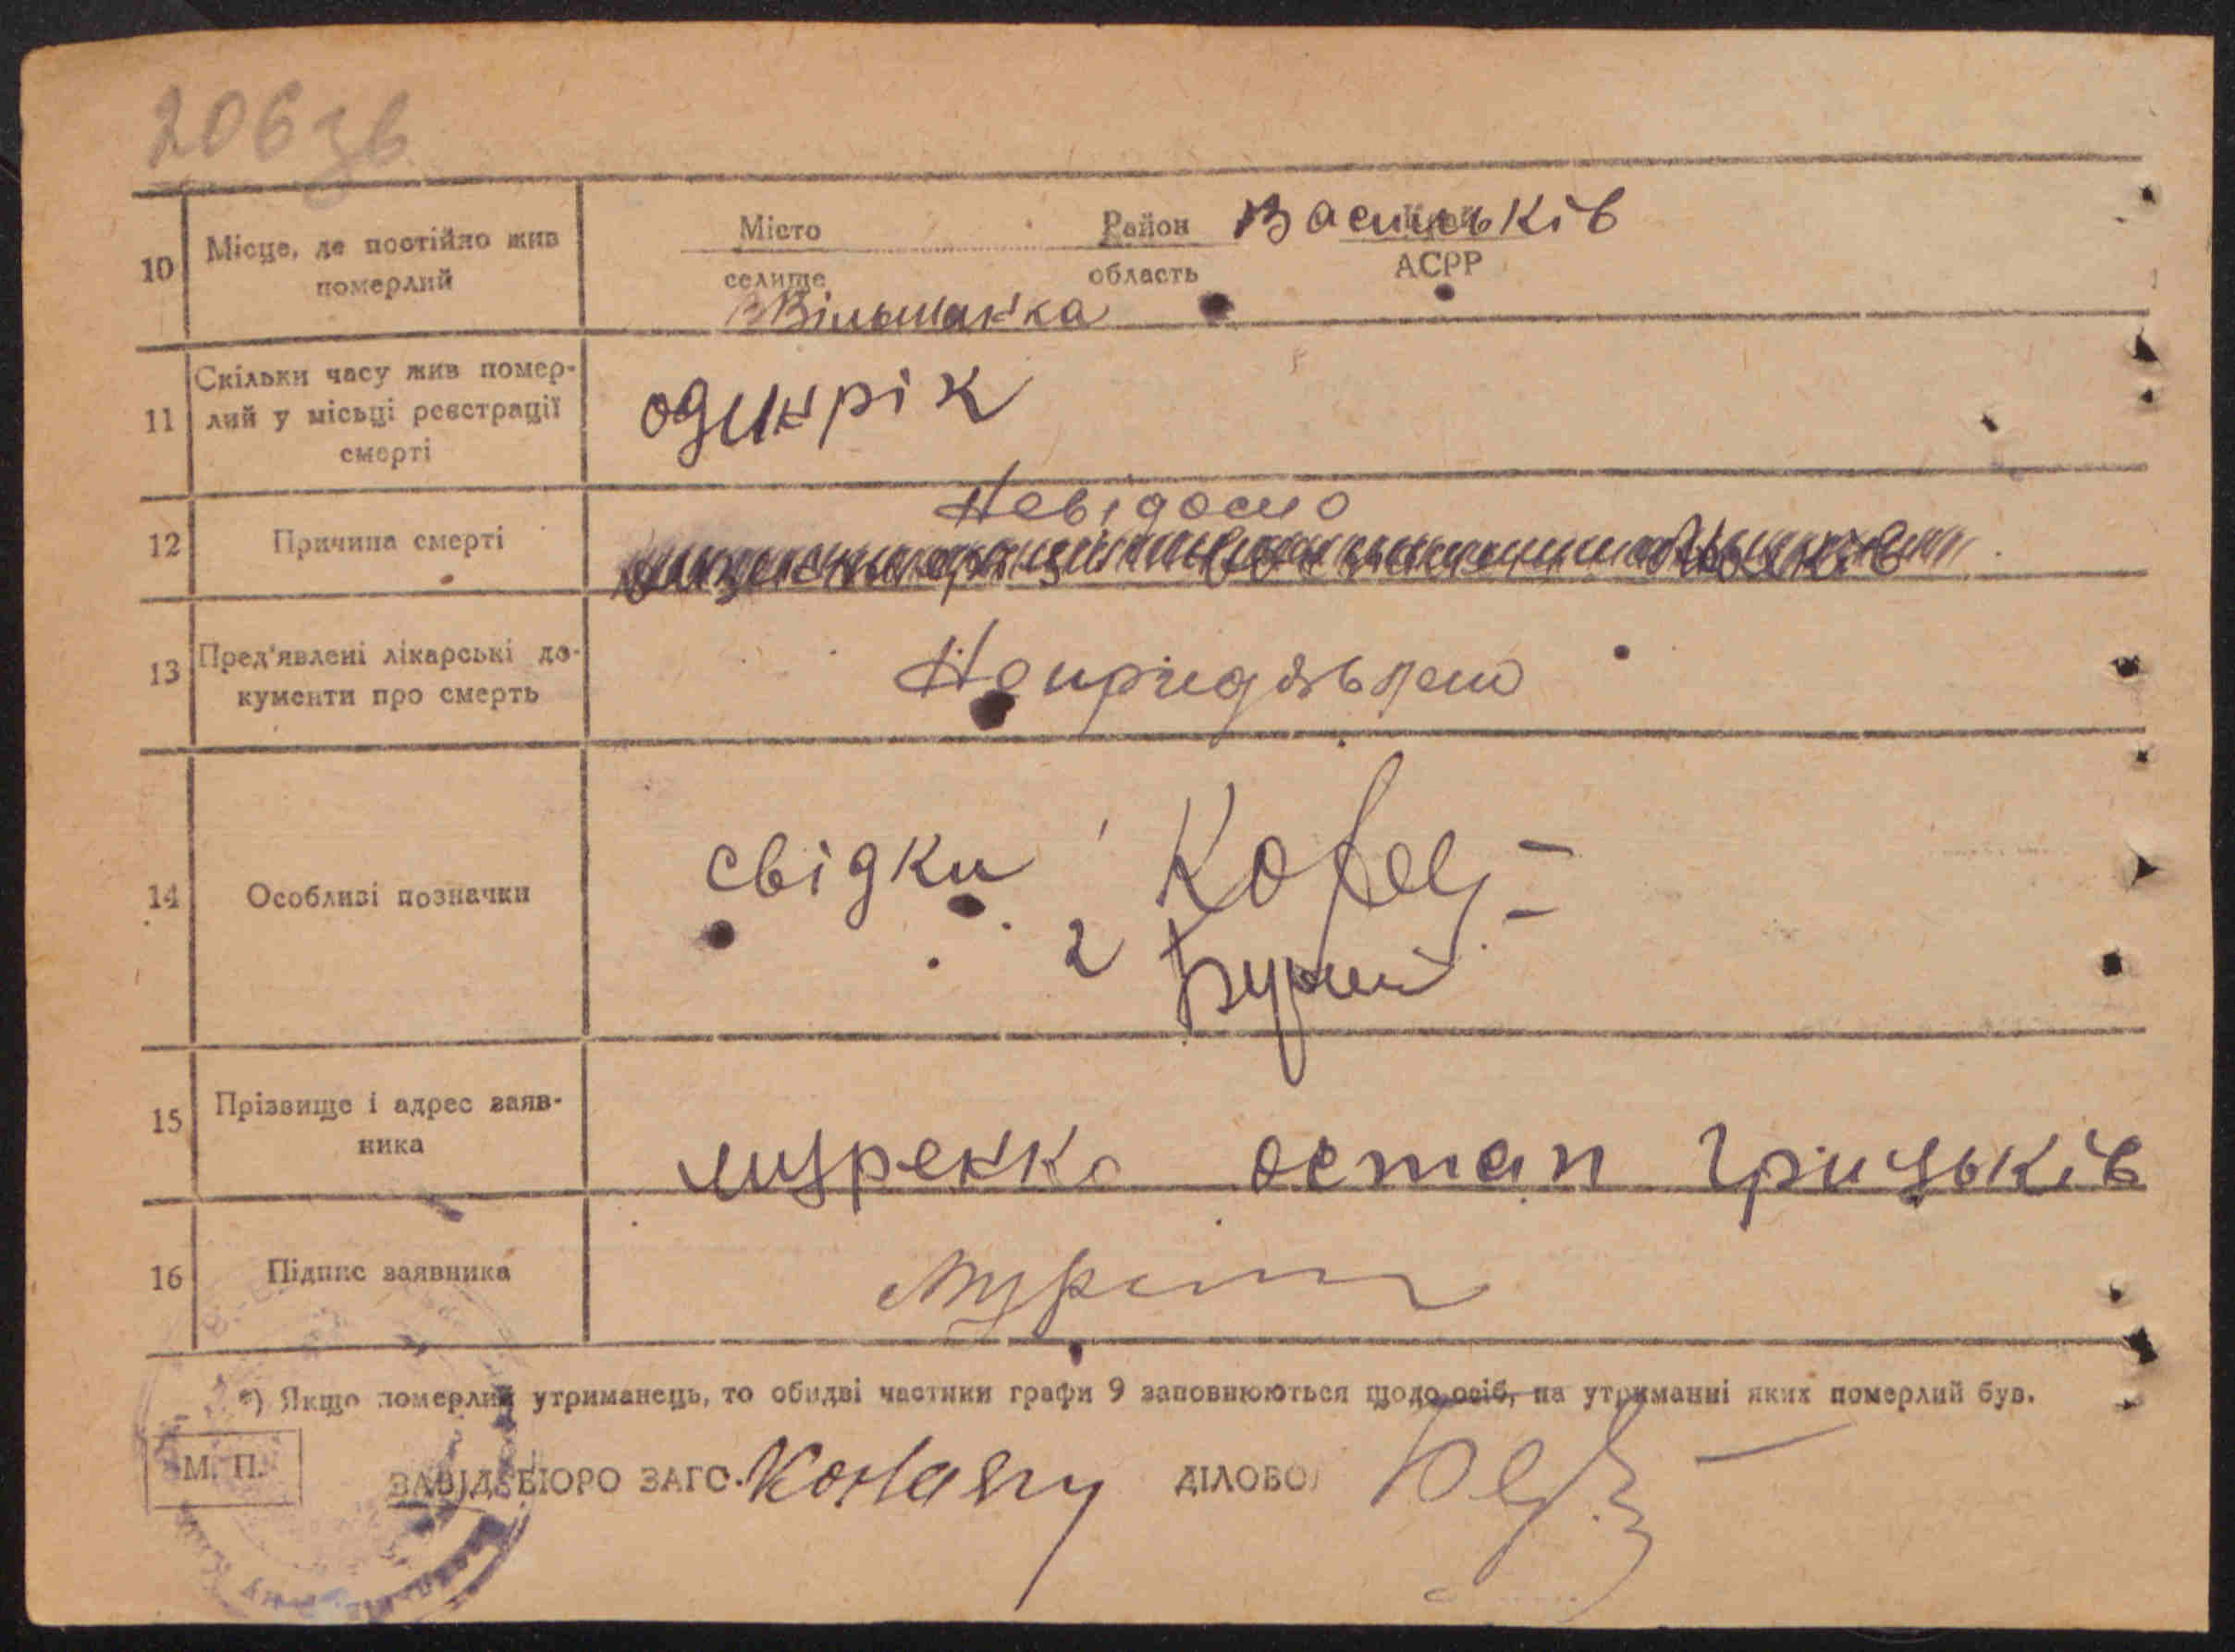 206зв
10 Місце, де постійно жив померлий
Місто Район Васильків
селище область АСРР
Вільшанка
11 Скільки часу жив помер-
лий у місьці реєстрації
смерті
один рік
12 Причина смерті
Невідомо
13 Пред'явлені лікарські до-
кументи про смерть
14 Особливі позначки
свідки 1
2
15 Прізвище і адрес заяв-
ника
остап грицьків
16 Підпис заявника
*) Якщо померлий утриманець, то обидві частини графи 9 заповнюються щодо осіб, на утриманні яких померлий був.
М. П.
ЗАВІД. БЮРО ЗАГС. ДІЛОВОД